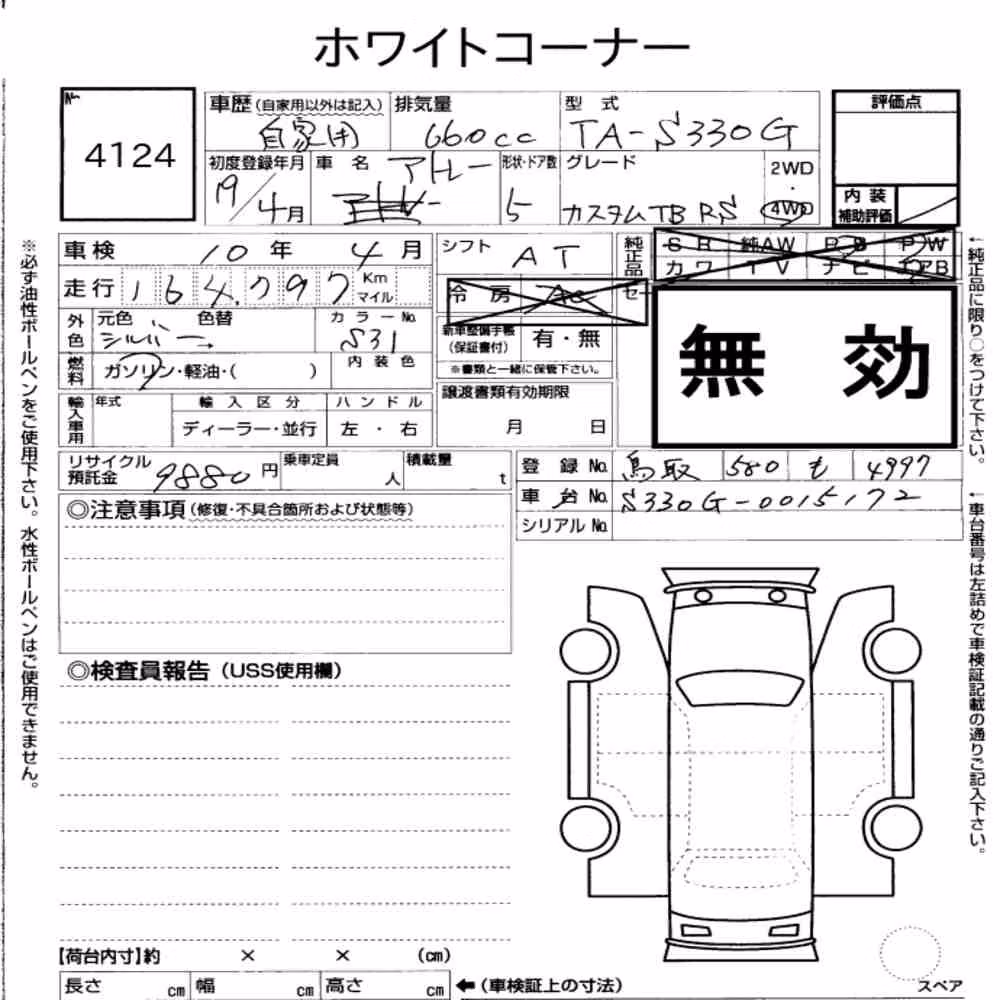 ホワイトコーナー
№
4124
車歴(自家用以外は記入)
自家用
排気量
660cc
型式
TA-S330G
評価点
初度登録年月
19/4月
車名
アトレー
形状・ドア数
5
グレード
カスタムTB RS
2WD
・
4WD
内装
補助評価
車検 10年 4月
シフト AT
純正品
SR 純AW PS PW
カワ TV ナビ エアB
走行 164,797 Km マイル
冷房 AC
セ
外色
元色 シルバー
色替
カラー№ S31
新車整備手帳
(保証書付)
有・無
※書類と一緒に保管下さい。
無効
燃料
ガソリン・軽油・( )
内装色
譲渡書類有効期限
月 日
輸入車用
年式
輸入区分
ディーラー・並行
ハンドル
左・右
リサイクル
預託金
9880円
乗車定員 人
積載量 t
登録№ 鳥取 580 も 4997
車台№ S330G-0015172
シリアル№
◎注意事項(修復・不具合箇所および状態等)
◎検査員報告(USS使用欄)
【荷台内寸】約 × × (cm)
長さ cm 幅 cm 高さ cm ←(車検証上の寸法)
スペア
※必ず油性ボールペンをご使用下さい。水性ボールペンはご使用できません。
←純正品に限り○をつけて下さい。
←車台番号は左詰めで車検証記載の通りご記入下さい。